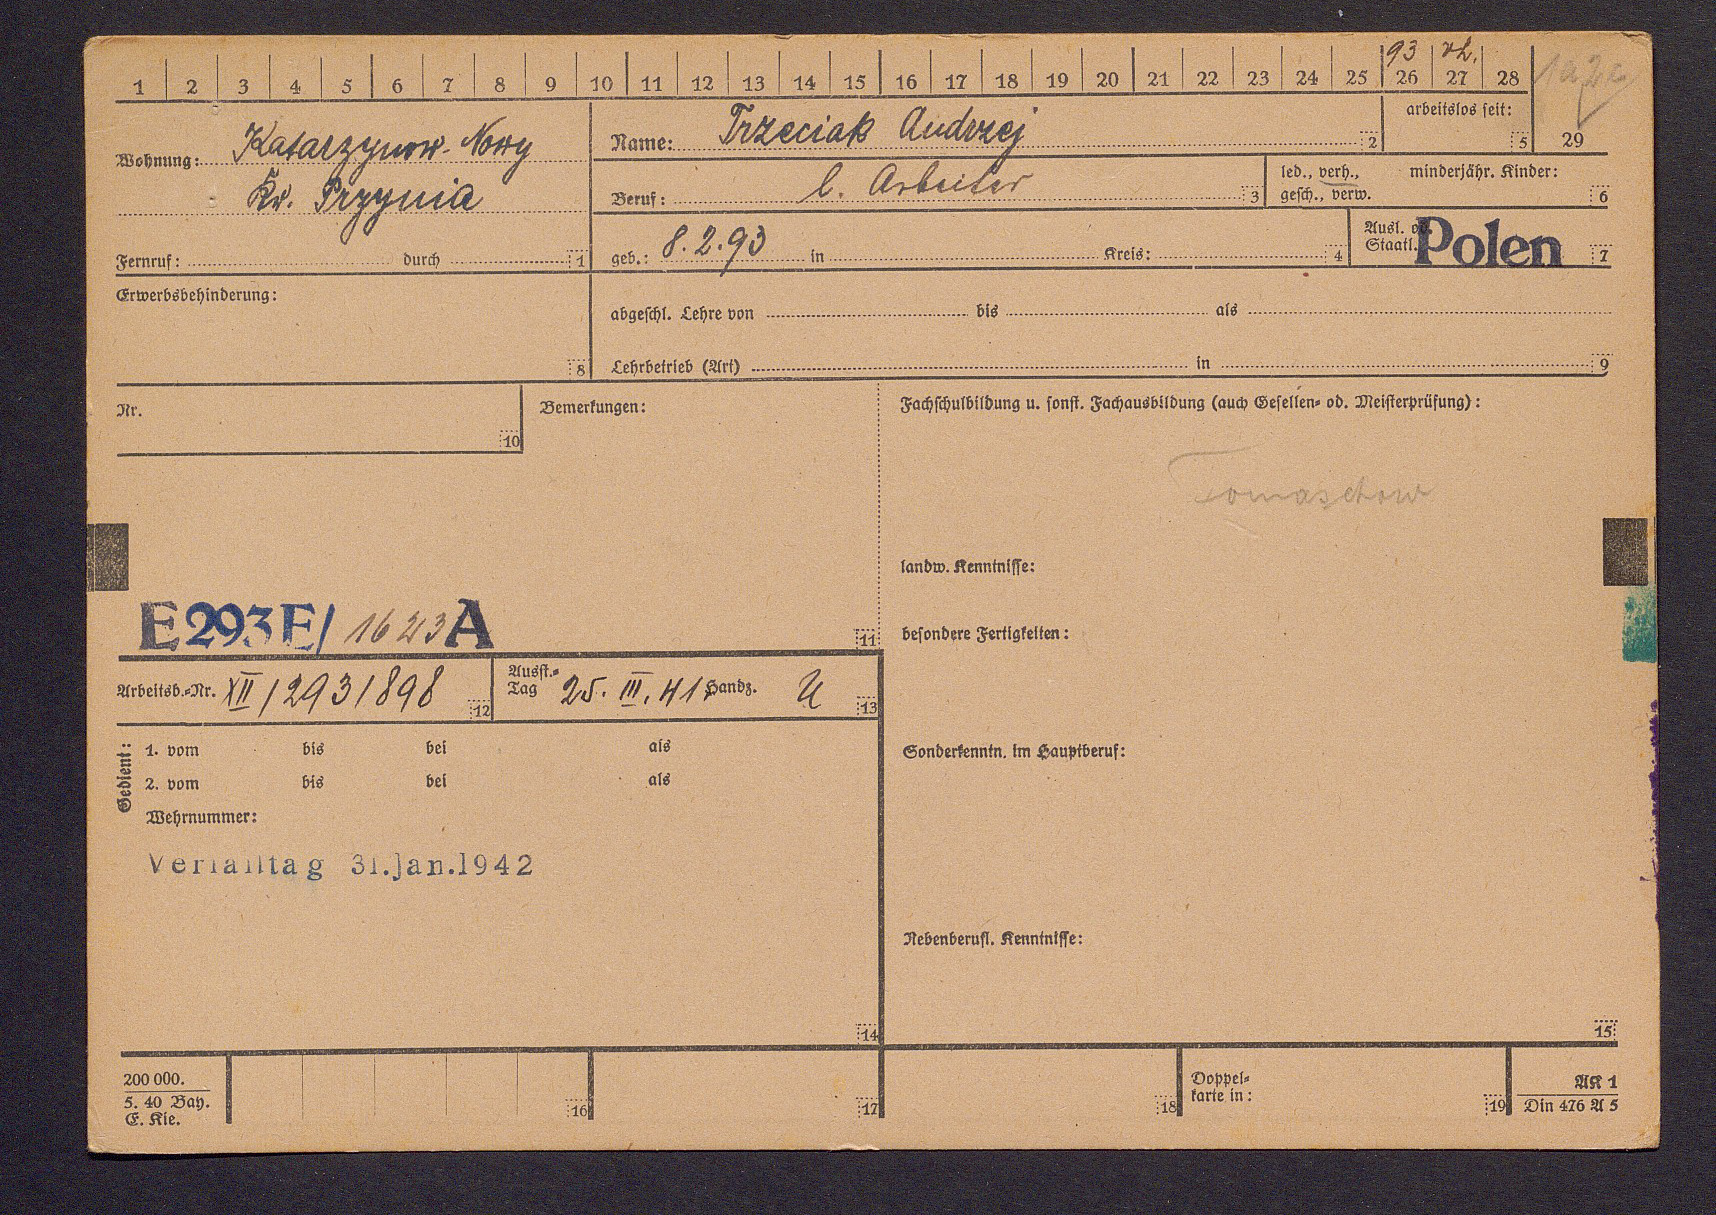 93 vh.
1 2 3 4 5 6 7 8 9 10 11 12 13 14 15 16 17 18 19 20 21 22 23 24 25 26 27 28 29
Wohnung: Katarzynow-Nowy
Kr. Przynia
Fernruf: durch 1
Name: Trzeciak Andrzej 2
arbeitslos seit: 5
Beruf: l. Arbeiter 3
led., verh., minderjähr. Kinder:
gesch., verw. 6
geb.: 8.2.93 in Kreis: 4
Ausl. od.
Staatl. Polen 7
Erwerbsbehinderung:
8
abgeschl. Lehre von bis als
Lehrbetrieb (Art) in 9
Nr.
10
Bemerkungen:
E 293 E/ 1623 A
11
Fachschulbildung u. sonst. Fachausbildung (auch Gesellen- od. Meisterprüfung):
Tomaschow
landw. Kenntnisse:
besondere Fertigkeiten:
Sonderkenntn. im Hauptberuf:
Nebenberufl. Kenntnisse:
15
Arbeitsb.-Nr. XII/293/898 12
Ausst.-
Tag 25. III. 41. Handz. U 13
Gedient:
1. vom bis bei als
2. vom bis bei als
Wehrnummer:
Verfalltag 31.Jan.1942
14
200 000.
5. 40 Bay.
E. Kle.
16
17
18
Doppel-
karte in:
19
AK 1
Din 476 A 5